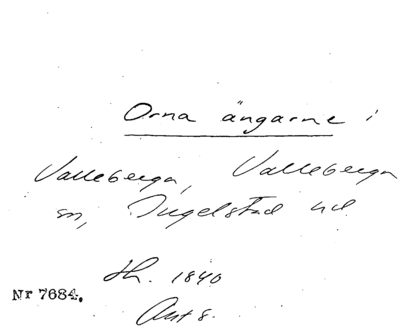 Orna ängarne i
Valleberga, Valleberga
sn, Ingelstad hd.
Hh. 1840
Nr 7684.
Ant 8.